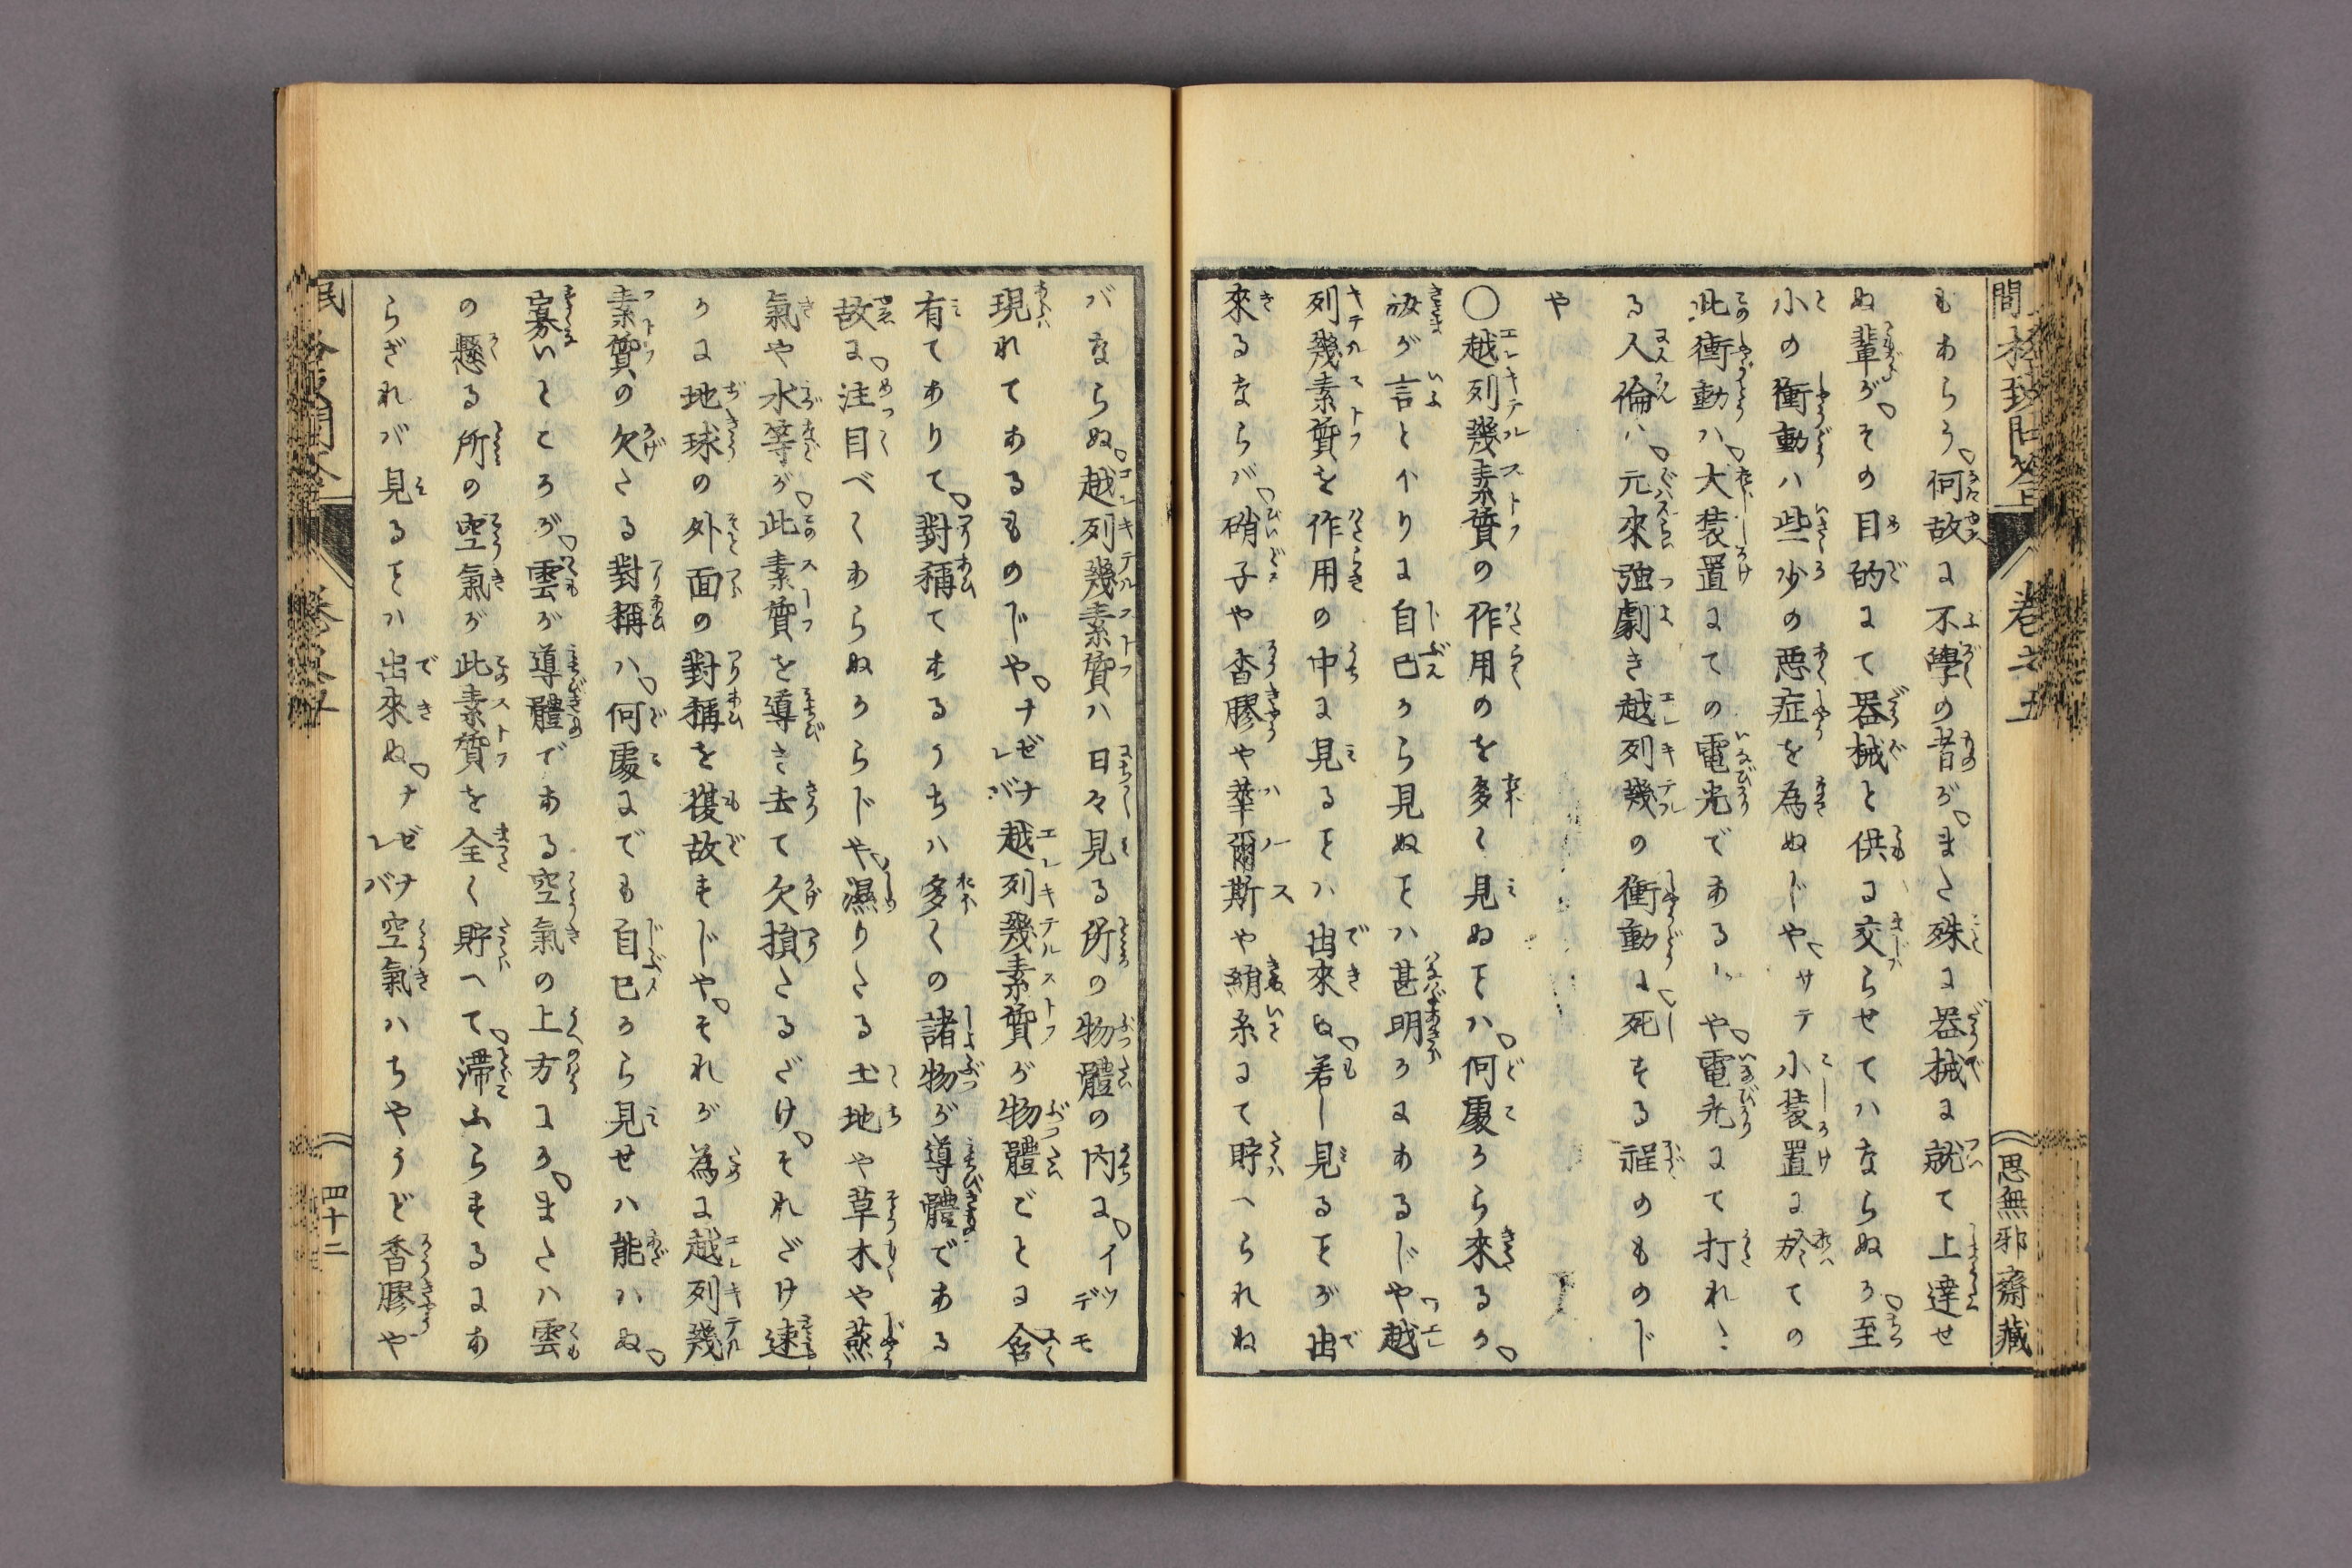 もあらう。何故に不學の者が。また殊に器械に就て上達せ
ぬ輩が。その目的にて器械と供に交らせてハならぬか。至
小の衝動ハ些少の悪症を為ぬじや。サテ小装置に於ての
此衝動ハ。大装置にての電光であるじや。電光にて打れ
る人倫ハ。元來強劇き越列幾の衝動に。死する程のものじ
や
〇越列幾素質の作用のを多く見ぬヿハ。何處から來るか。
汝が言とホりに自己から見ぬヿハ甚明かにあるじや越
列幾素質を作用の中に見るヿハ出來ぬ。若し見るヿが出
來るならバ。硝子や杳膠や華爾斯や絹糸にて貯へられね
バならぬ。越列幾素質ハ日々見る所の物體の内に。イツデモ
現れてあるものじや。ナゼナレバ越列幾素質が物體ごとに含
有てありて。對稱てをるうちハ多くの諸物が導體である
故に。注目べくあらぬからじや。濕りたる土地や草木や蒸
氣や水等が。此素質を導き去て欠損たるだけ。それだけ速
かに地球の外面の對稱を復故すじや。それが為に越列幾
素質の欠たる對稱ハ。何處にでも自己から見せハ能ハぬ。
寡いところが。雲が導體である空氣の上方にか。またハ雲
の懸る所の空氣が此素質を全く貯へて。滞ふらするにあ
らざれバ見るヿハ出來ぬ。ナゼナレバ空氣ハちやうど香膠や
四十二
卷之五
思無邪齋藏